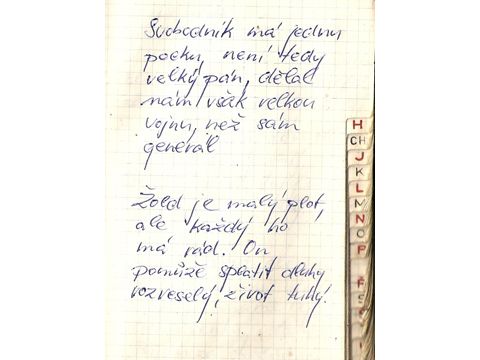 Svobodník má jednu
pecku, není tedy
velký pán, dělal
nám však velkou
vojnu, než sám
generál
Žold je malý plat,
ale každý ho
má rád. On
pomůže splatit dluhy
rozveselý, život tuhý.
H
CH
J
K
L
M
N
O
P
Ř
S